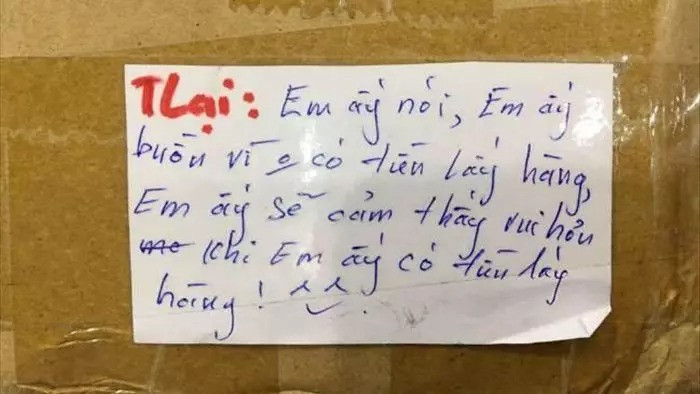 TLại: Em ấy nói, Em ấy
buồn vì o có tiền lấy hàng,
Em ấy sẽ cảm thấy vui hơn
khi Em ấy có tiền lấy
hàng! ^‿^